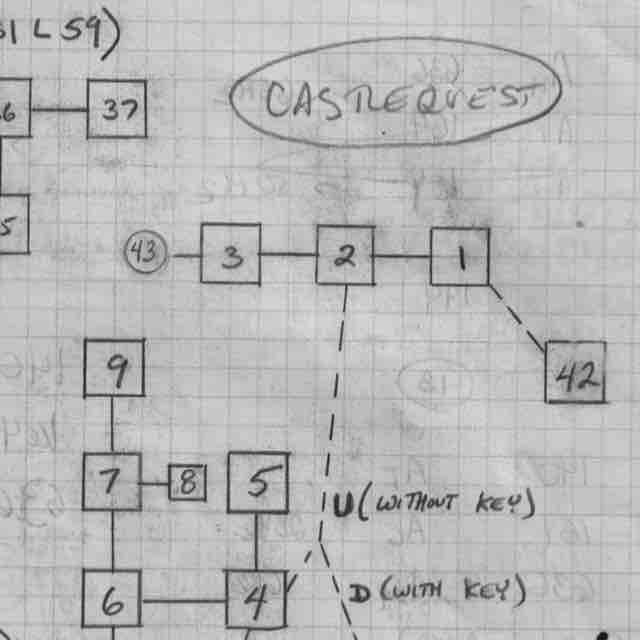 51 L 59)
CASTLEQUEST
6 37
5
43 3 2 1
42
9
7 8 5
U (WITHOUT KEY)
6 4
D (WITH KEY)